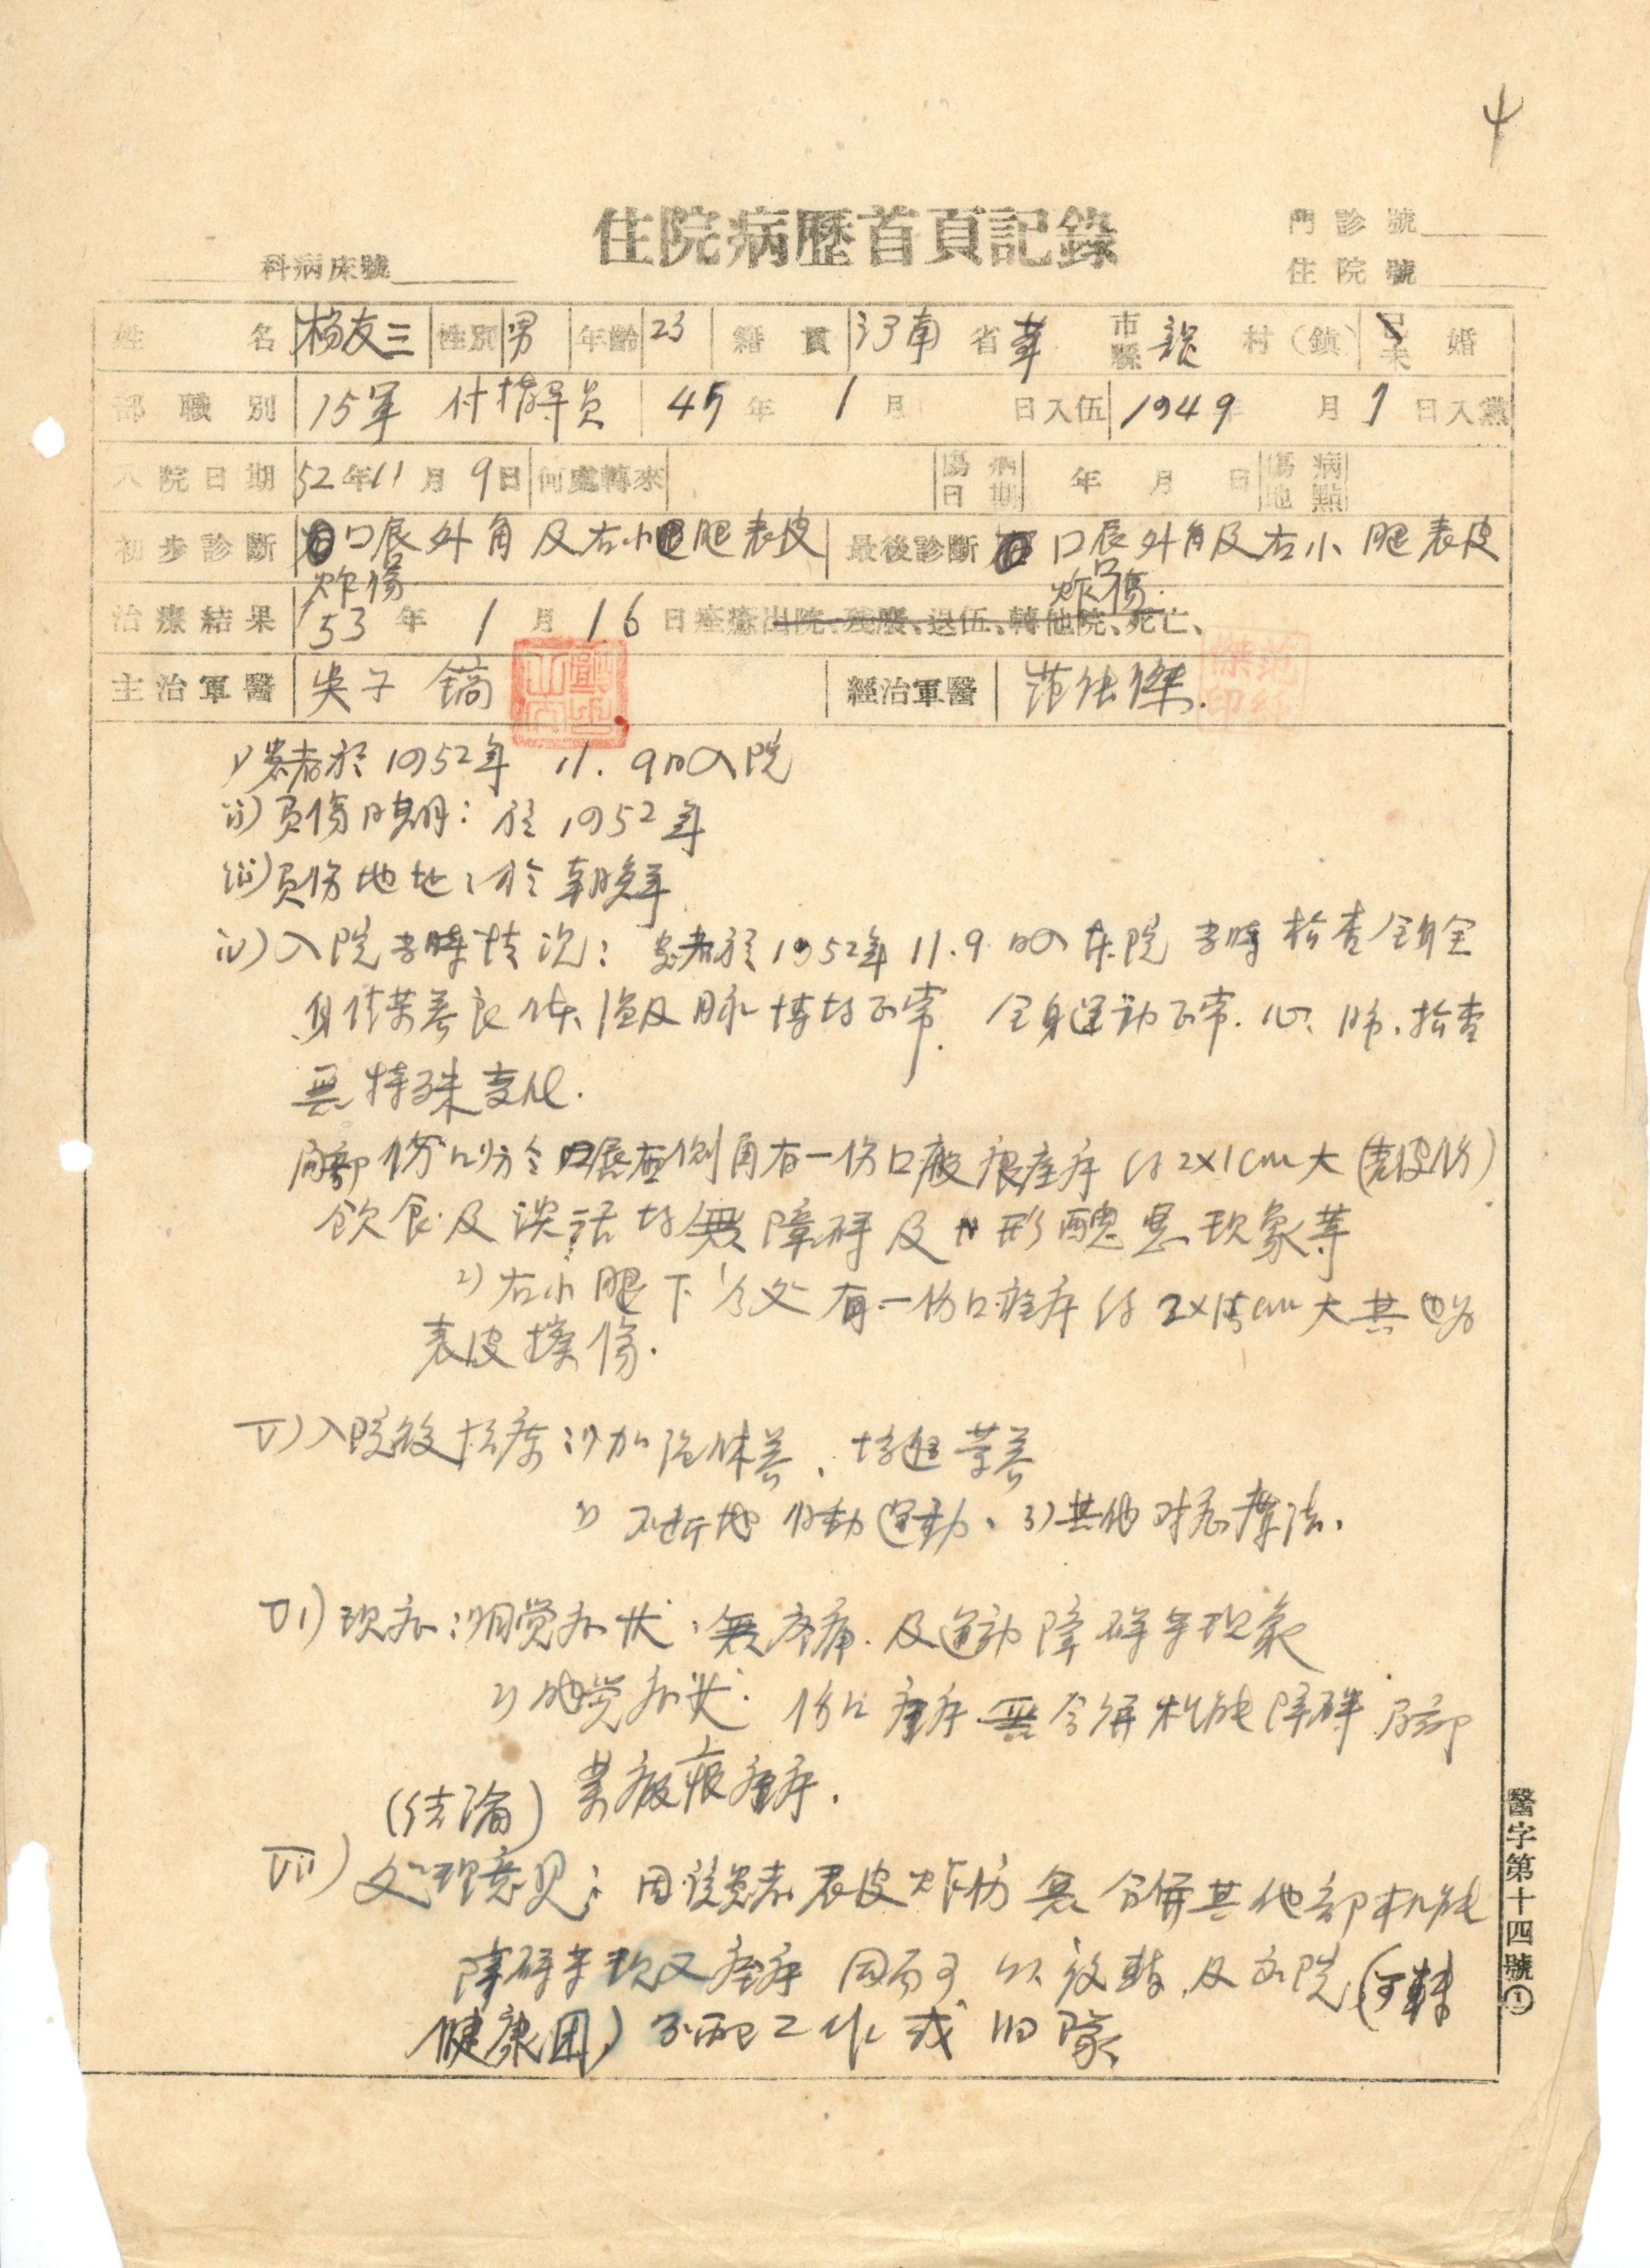 4
住院病歷首頁記錄
門診號
科病床號
住院號
姓名 楊友三 性別 男 年齡 23 籍貫 河南 省 市縣 村(鎮) 已未婚
部職別 15軍 付指导員 45年1月 日入伍 1949年 月7日入黨
入院日期 52年11月9日 何處轉來 傷病日期 年月日 傷病地點
初步診斷 口唇外角及右小腿表皮炸傷 最後診斷 口唇外角及右小腿表皮炸傷
治療結果 53年1月16日痊癒出院、殘廢、退伍、轉他院、死亡、
主治軍醫 吳子鎬 經治軍醫 范 傑
i)患者於1952年11.9日入院
ii)負傷日期:於1952年
iii)負伤地址:於朝鮮
iv)入院当時情況:患者於1952年11.9日入本院 当時檢查
身 营养良 体温及脉博均正常.全身運動正常.心、肺、檢查
無特殊变化.
局部 伤口 口唇 側角有一伤口瘢痕痊疗 約2×1cm大(表皮伤)
飲食及談話均無障碍及 形醜惡現象等
2)右小腿下 处有一伤口痊疗約 cm大其 为
表皮 傷.
V)入院後 療:1)加强休养、 营养
2)不断地 運動、3)其他对症療法、
VI)現症:1)自覚症状:無疼痛.及運动障碍等現象
2)他觉症状:伤口痊疗.無合併机能障碍 局部
瘢痕痊疗.
(结論)
VII)处理意見:因該患者表皮炸伤無合併其他部机能
障碍等現又痊疗 因而可以 及 院(可轉
健康団)分配工作或归隊、
醫字第十四號①